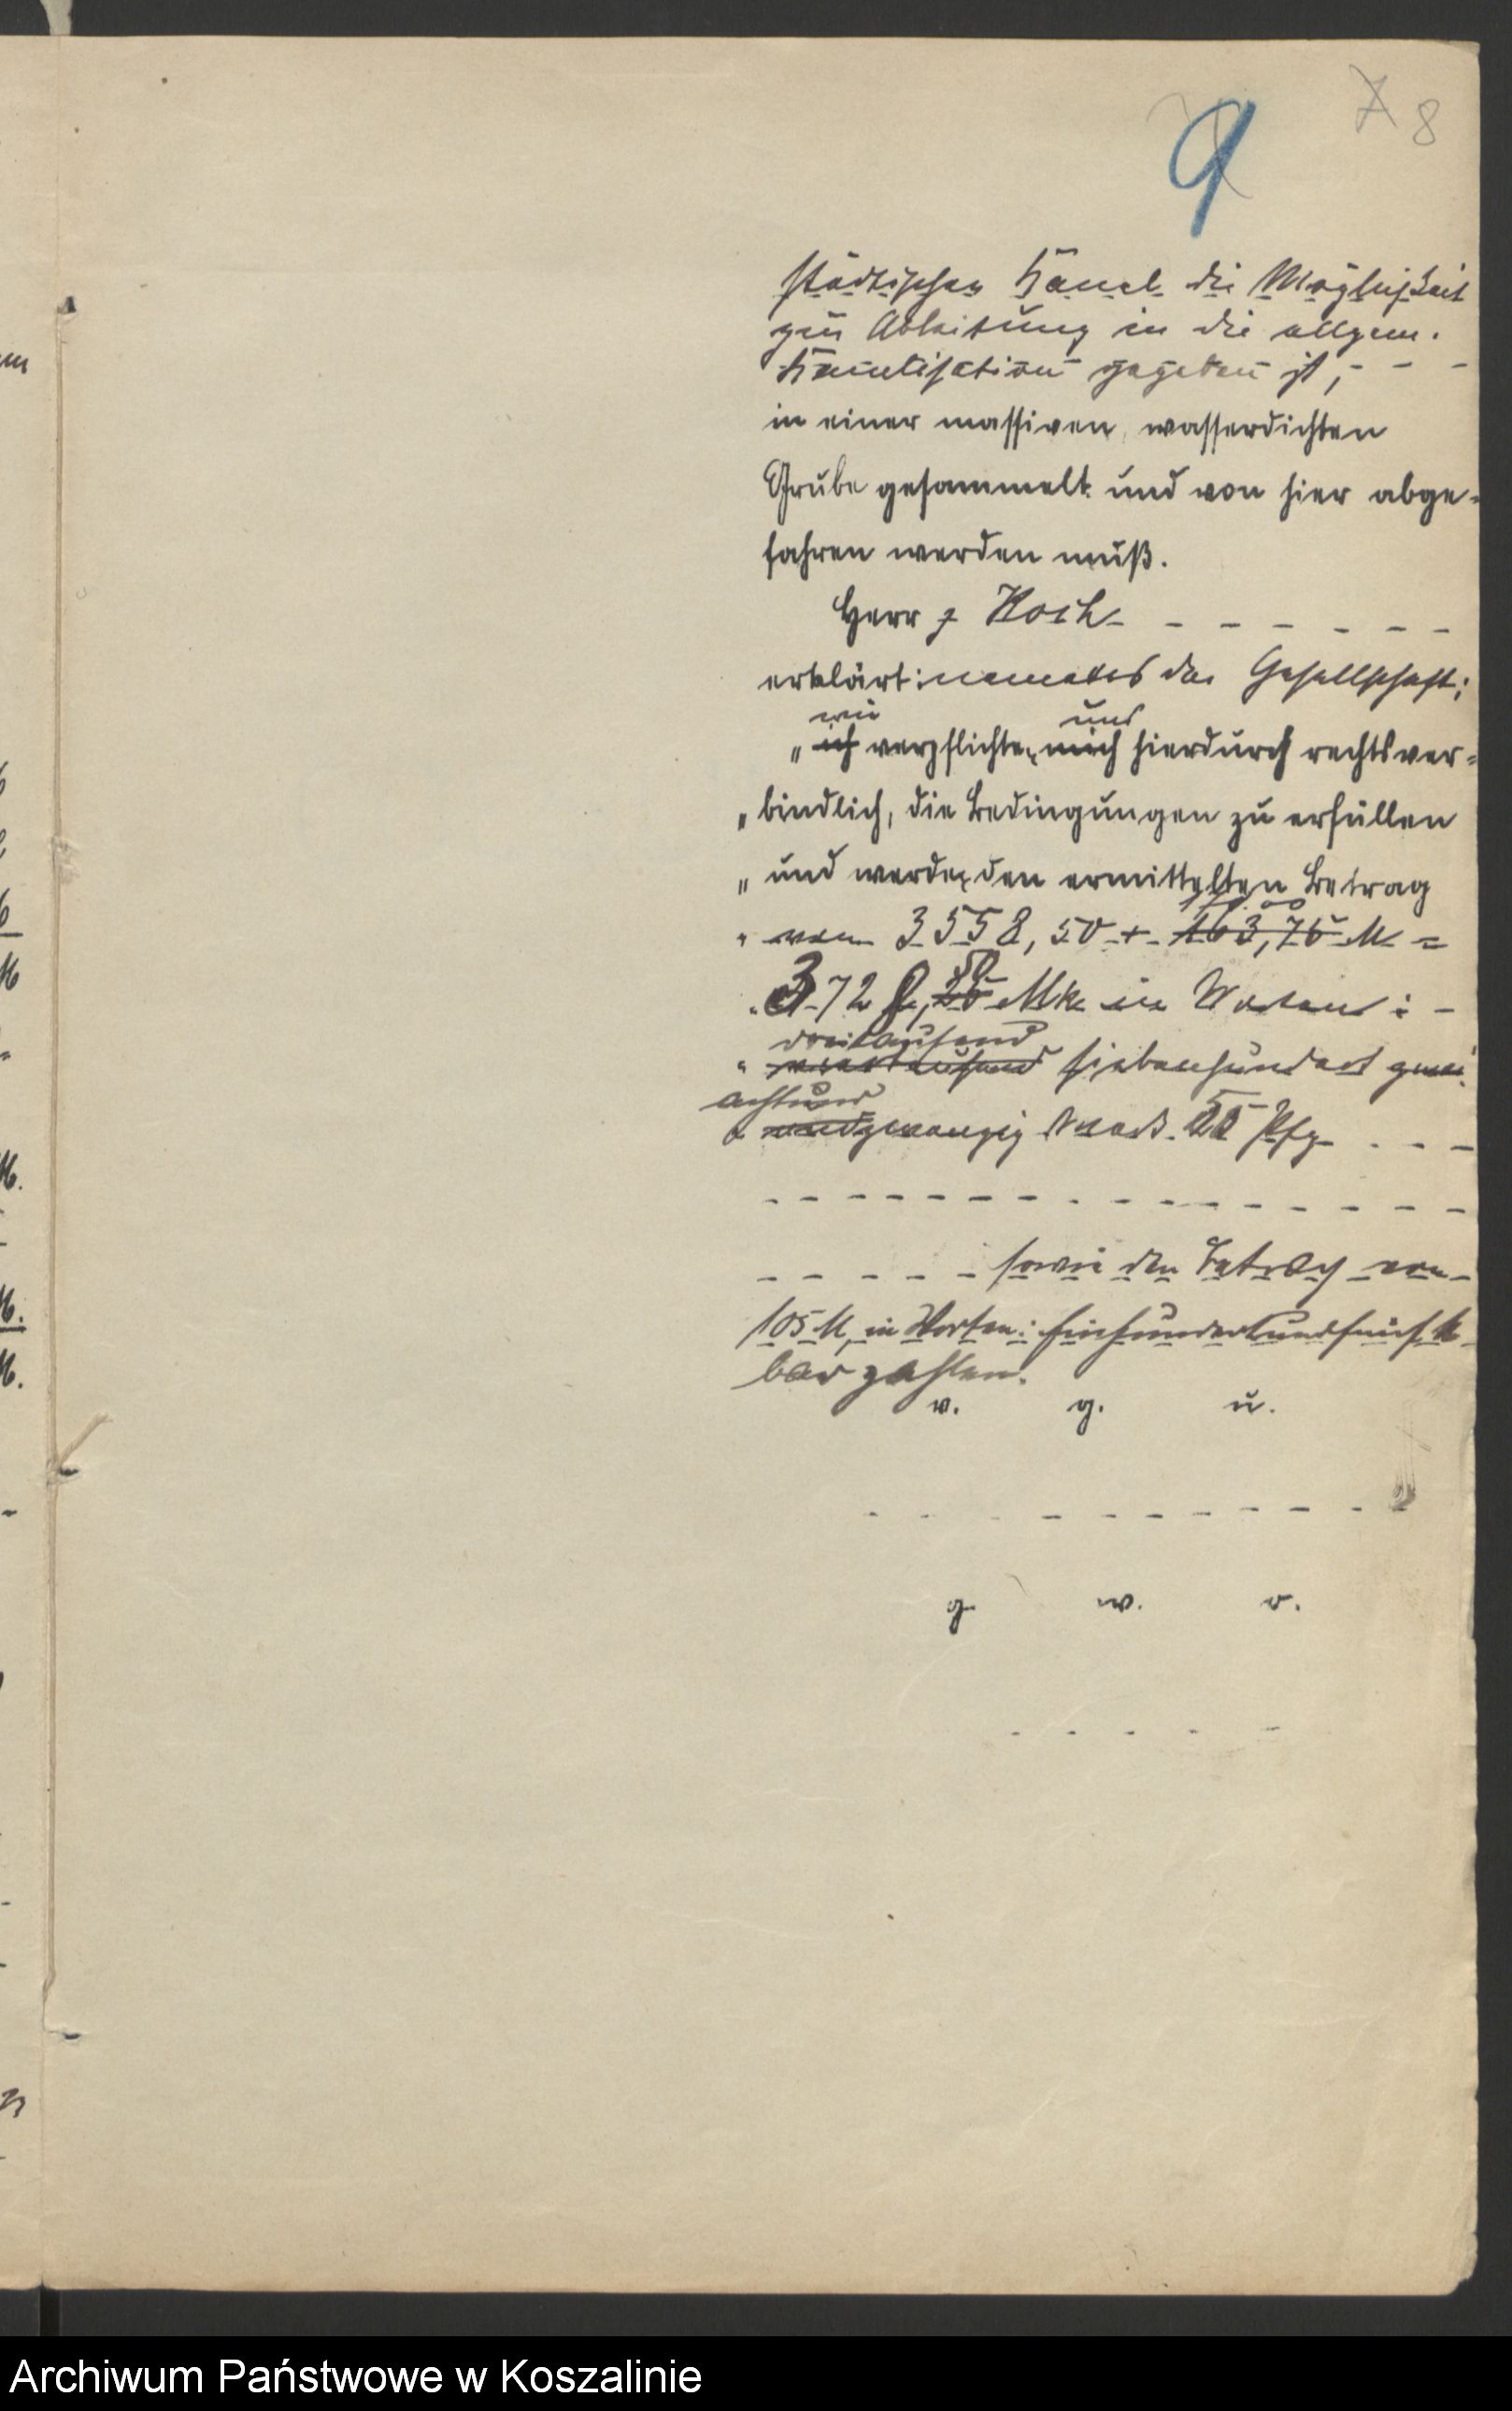 9
7 8
städtischen Kanal die Möglichkeit
zur Ableitung in die allgem.
Kanalisation gegeben ist, - - -
in einer massiven, wasserdichten
Grube gesammelt und von hier abge-
fahren werden muß.
Herr Koch - - - - - - -
erklärt: namens der Gesellschaft:
wir uns
„ ich verpflichten mich hierdurch rechtsver-
„ bindlich, die Bedingungen zu erfüllen
„ und werden den ermittelten Betrag
„ von 3558,50 + 163,75 M =
50
„ 3728,25 Mk in Worten: -
dreitausend
„ siebenhundert zwei
achtund
„ undzwanzig Mark Pfg - - -
- - - - - sowie den Betrag von -
105 M, in Worten: Einhundertundfünf M
bar zahlen.
v. g. u.
g. w. o.
Archiwum Państwowe w Koszalinie